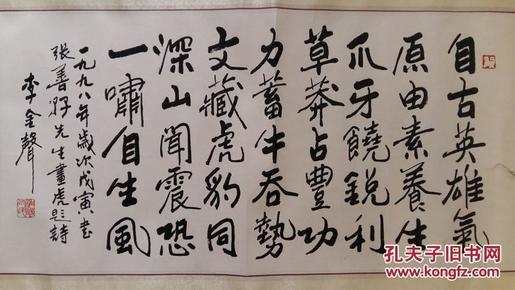 自古英雄氣
原由素養生
爪牙饒銳利
草莽占豐功
力蓄牛吞勢
文藏虎豹同
深山聞震恐
一嘯自生風
一九九八年歲次戊寅书
張善孖先生畫虎題詩
李金聲
孔夫子旧书网
www.kongfz.com